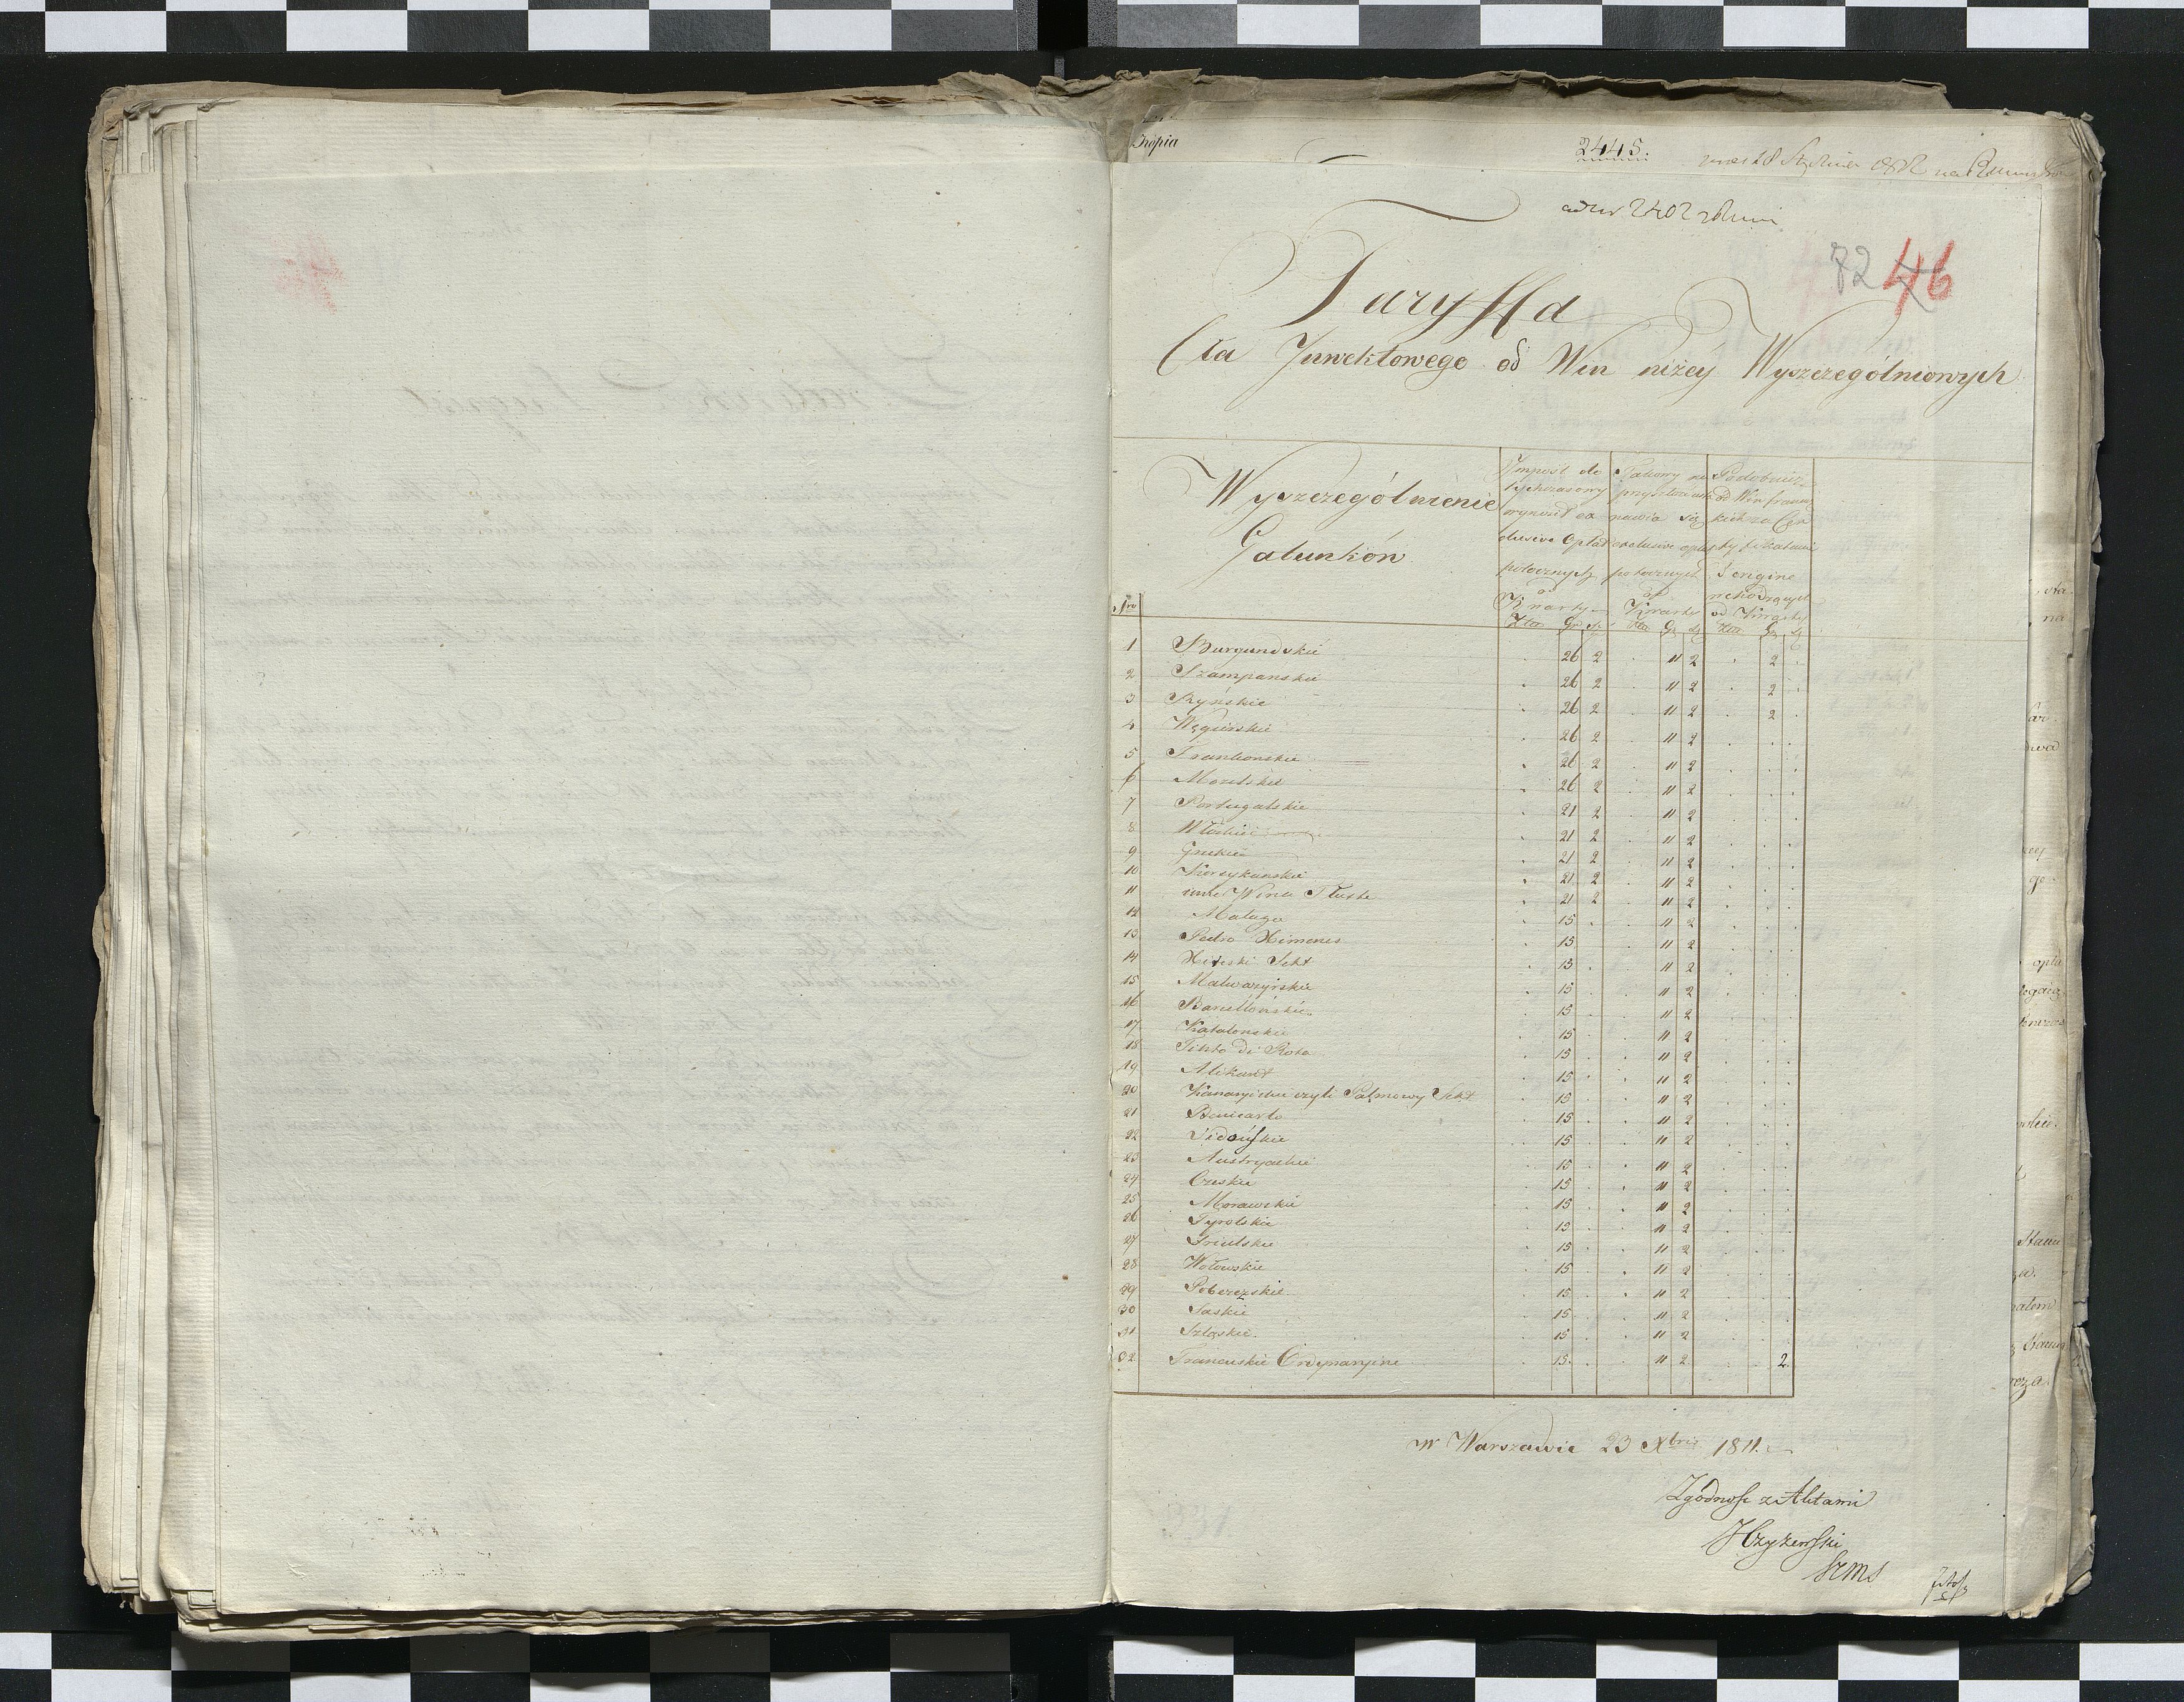 Kopia
2445.
ad Nr 2402
82 46
Taryffa
Cła Inwektowego od Win niżéy Wyszczególnionych
Nro
Wyszczególnienie
Gatunków
Impost do
tychczasowy
wynosił ex
clusive Opłat
potocznych
od
Kwarty
Złot Gr Sz
Takowy na
przyszłość usta
nawia się
exclusive opłat
potocznych
od
Kwarty
Złot Gr Sz
od Win francu
kich za Cer
tyfikatami
d'origine
wchodzących
od Kwarty
Złot Gr Sz
1 Burgundskié . 26 2 . 11 2 . 2 .
2 Szampanskié . 26 2 . 11 2 . 2 .
3 Ryńskié . 26 2 . 11 2 . 2 .
4 Węgierskié . 26 2 . 11 2 . . .
5 Frankonskie . 26 2 . 11 2 . . .
6 Mozelskie . 26 2 . 11 2 . . .
7 Portugalskie . 21 2 . 11 2 . . .
8 Włoskié . 21 2 . 11 2 . . .
9 Greckie . 21 2 . 11 2 . . .
10 Korsykanskié . 21 2 . 11 2 . . .
11 inne Wina Tłuste . 21 2 . 11 2 . . .
12 Malaga . 15 . . 11 2 . . .
13 Pedro Ximenes . 15 . . 11 2 . . .
14 Xereski Sekt . 15 . . 11 2 . . .
15 Malwazyiskie . 15 . . 11 2 . . .
16 Barcellońskie . 15 . . 11 2 . . .
17 Katalonskie . 15 . . 11 2 . . .
18 Tinto di Rota . 15 . . 11 2 . . .
19 Alikant . 15 . . 11 2 . . .
20 Kanaryiskie czyli Palmowy Sekt . 15 . . 11 2 . . .
21 Benicarlo . 15 . . 11 2 . . .
22 Sidońskie . 15 . . 11 2 . . .
23 Austryackié . 15 . . 11 2 . . .
24 Czeskie . 15 . . 11 2 . . .
25 Morawskié . 15 . . 11 2 . . .
26 Tyrolskie . 15 . . 11 2 . . .
27 Friulskie . 15 . . 11 2 . . .
28 Wołowskie . 15 . . 11 2 . . .
29 Pobereżskie . 15 . . 11 2 . . .
30 Saskié . 15 . . 11 2 . . .
31 Szląskie . 15 . . 11 2 . . .
32 Francuskié Ordynaryine . 15 . . 11 2 . . 2.
w Warszawie 23 Xbris 1811.
Zgodność z Aktami